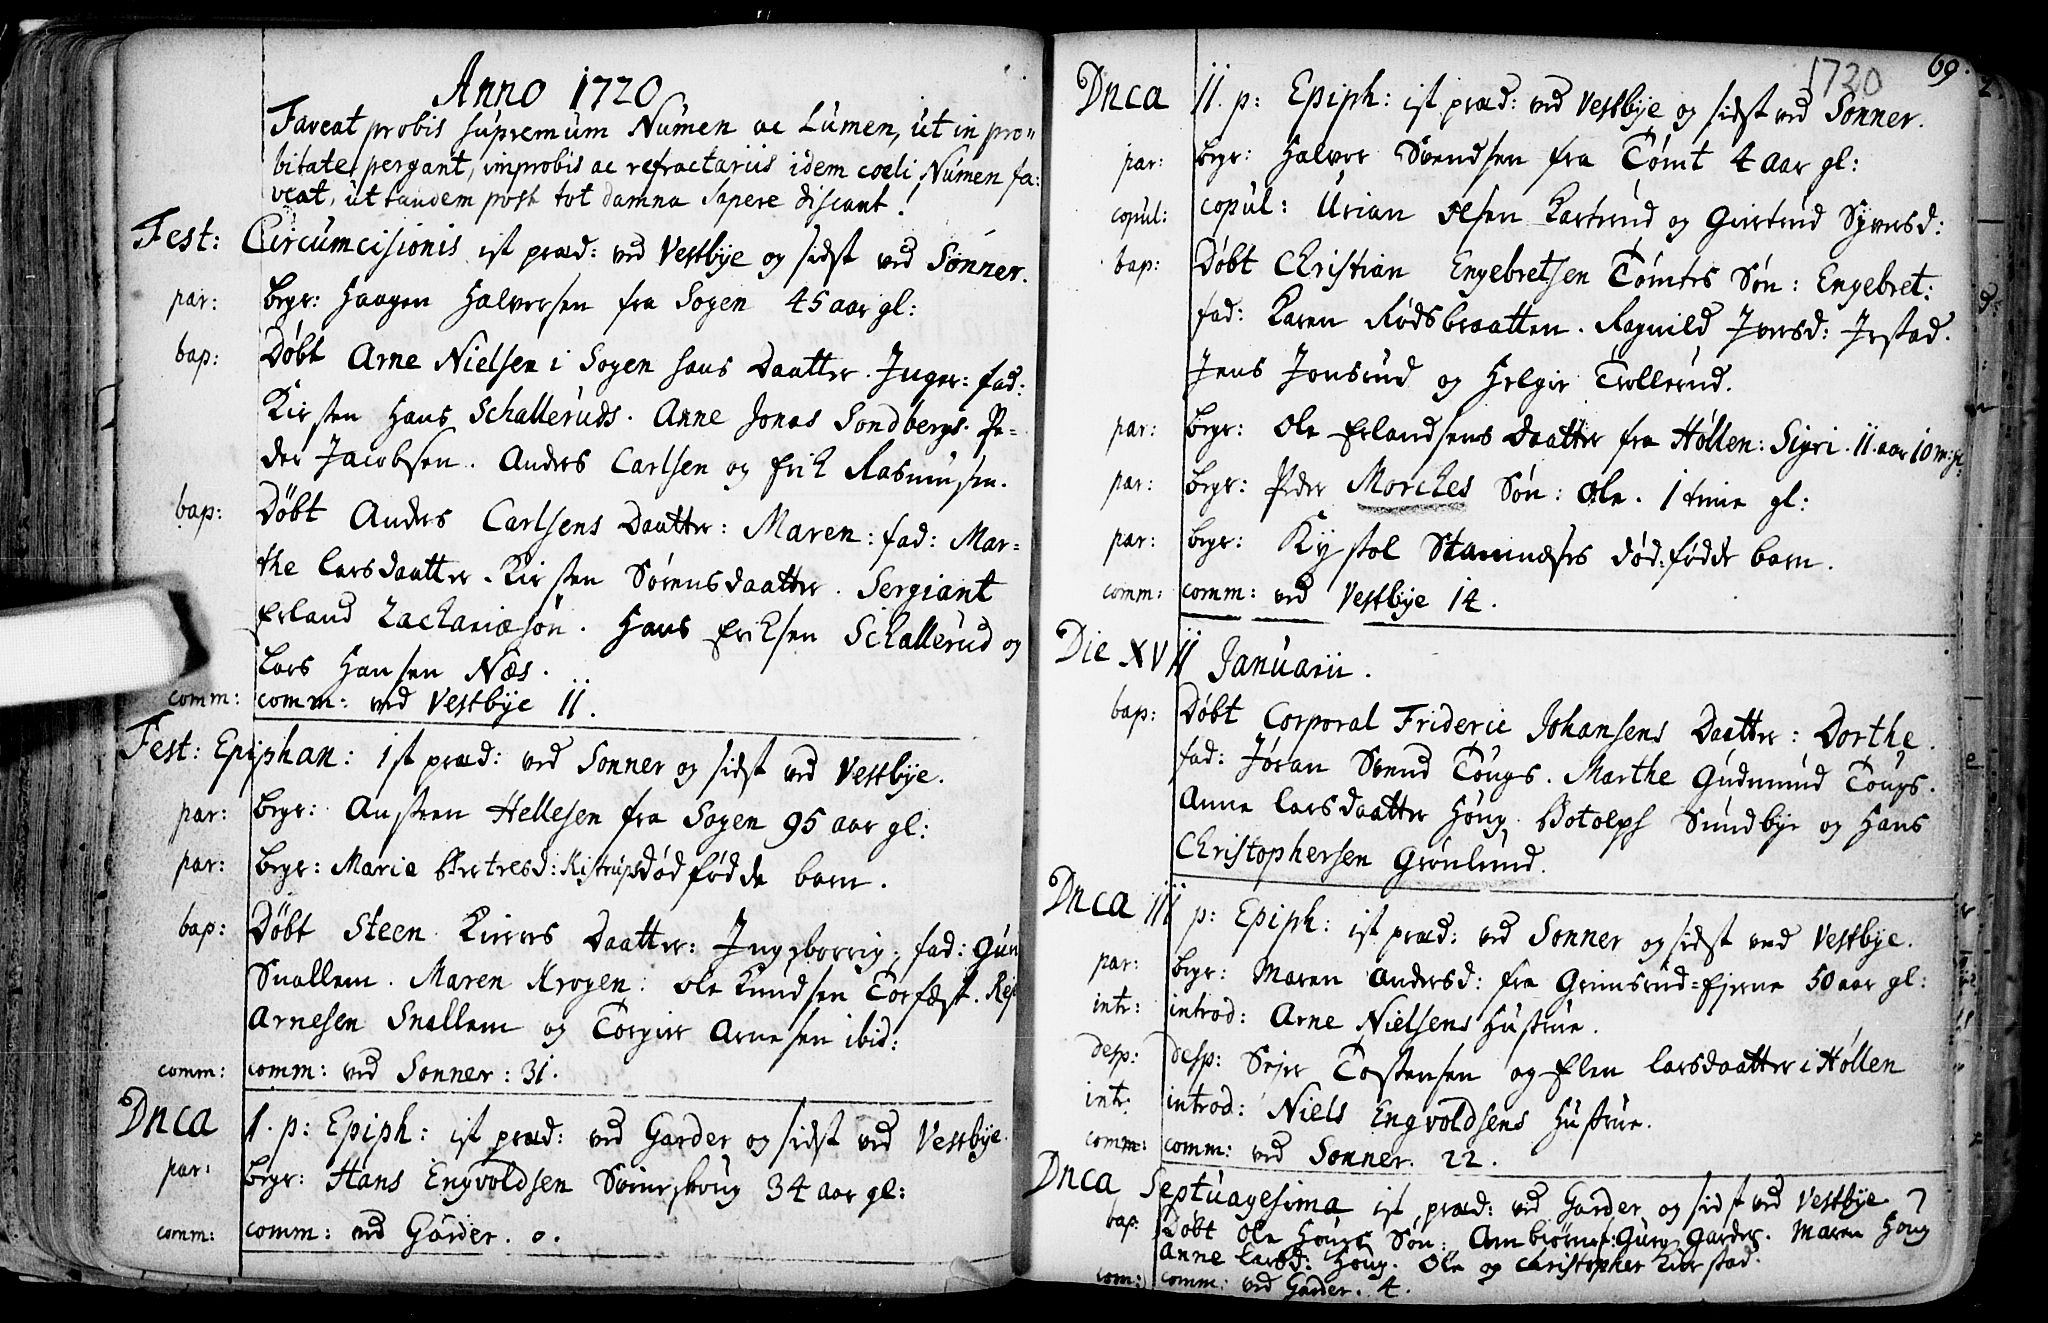 Anno 1720
Faveat probis supremum Numen ac Lumen, ut in pro=
bitate pergant, improbis ac refractariis idem coeli Numen fa:
veat, ut tandem post tot damna sapere discant!
Fest: Circumcisionis ist præd: ved Vestbye og sidst ved Sonner.
par: begr: Haagen Halversen fra Sogen 45 aar gl:
bap: Døbt Arne Nielsen i Sogen hans Daatter. Inger: fad:
Kirsten Hans Schalleruds. Anne Jonas Sondbergs. Pe=
der Jacobsen. Anders Carlsen og Erik Rasmusen.
bap: Døbt Anders Carlsens Daatter: Maren: fad: Mar=
the Larsdaatter. Kirsten Sørensdaatter. Sergiant
Erland Zachariæsøn. Hans Eriksen Schallerud og
Lars Hansen Næs.
comm: comm: ved Vestbye 11.
Fest: Epiphan: ist præd: ved Sonner og sidst ved Vestbye.
par: begr: Austen Hellesen fra Sogen 95 aar gl:
par: begr: Maria dødfødde barn.
bap: Døbt Steen Kieers Daatter: Ingeborrig, fad: Gun
Snallem. Maren Krogen: Ole Knudsen Torfæst.
Arnesen Snallem og Torgier Arnesen ibid:
comm: comm: ved Sonner: 31.
Dnca 1. p: Epiph: ist præd: ved Garder og sidst ved Vestbye.
par: begr: Hans Engvoldsen 34 aar gl:
comm: comm: ved Garder. 0.
1720 69.
Dnca II. p: Epiph: ist præd: ved Vestbye og sidst ved Sonner.
par: begr: Halvor Svendsen fra Tømt 4 aar gl:
copul: copul: Urian Olsen Kastrud og Giertrud Syversd:
bap: Døbt Christian Engebretsen Tømtes Søn: Engebret:
fad: Karen Rødsbraatten. Ragnild Iversd: Irstad.
Jens Jonsrud og Helgie Trollerud.
par: begr: Ole Erlandsens Daatter fra Høllen: Sigri. 11. aar 10 m: gl:
par: begr: Peder Morckes Søn: Ole. 1 time gl:
par: begr: Kystol Stamnæses død:fødde barn.
comm: comm: ved Vestbye 14.
Die XVII Januarii.
bap: Døbt Corporal Frideric Johansens Daatter: Dorthe.
fad: Jøran Svend Tougs. Marthe Gudmund Tougs.
Anne Larsdaatter Houg. Botolph Sundbye og Hans
Christophersen Grønlund.
Dnca III p: Epiph: ist præd: ved Sonner og sidst ved Vestbye.
par: begr: Maren Andersd: fra Grimsrud=Eierne 50 aar gl:
intr: introd: Arne Nielsens Hustrue.
desp: desp: Sejer Tostensen og Elen Larsdaatter i Høllen
intr: introd: Niels Engvoldsens Hustrue.
comm: comm: ved Sonner. 22.
Dnca Septuagesima ist præd: ved Garder og sidst ved Vestbye.
bap: Døbt Ole Hougs Søn: Ambiørn f: Guro Garder. Maren Houg
Anne Larsd: Houg. Ole og Christopher Kierstad.
com: comm: ved Garder. 4.